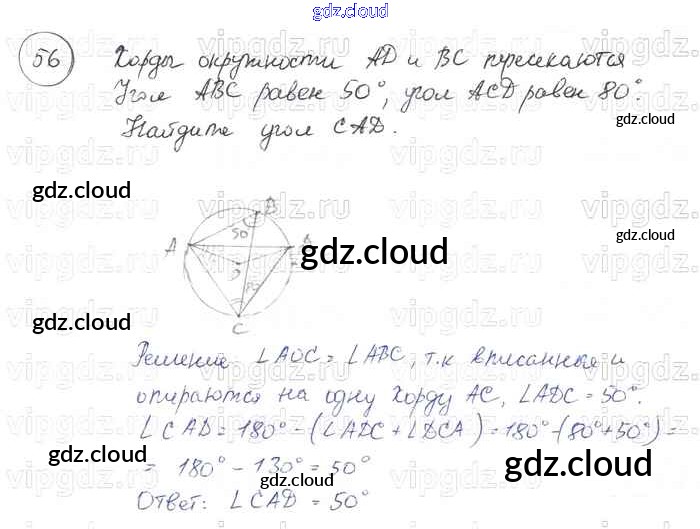 gdz.cloud
56 Хорды окружности AD и BC пересекаются
Угол ABC равен 50°, угол ACD равен 80°.
Найдите угол CAD.
gdz.cloud
gdz.cloud
gdz.cloud
gdz.cloud
B
50
A
C
gdz.cloud
Решение ∠AOC = ∠ABC, т.к вписанные и
опираются на одну хорду AC, ∠ADC = 50°.
∠CAD = 180° - (∠ADC + ∠DCA) = 180° - (80° + 50°) =
= 180° - 130° = 50°
Ответ: ∠CAD = 50°
gdz.cloud
gdz.cloud
gdz.cloud
gdz.cloud